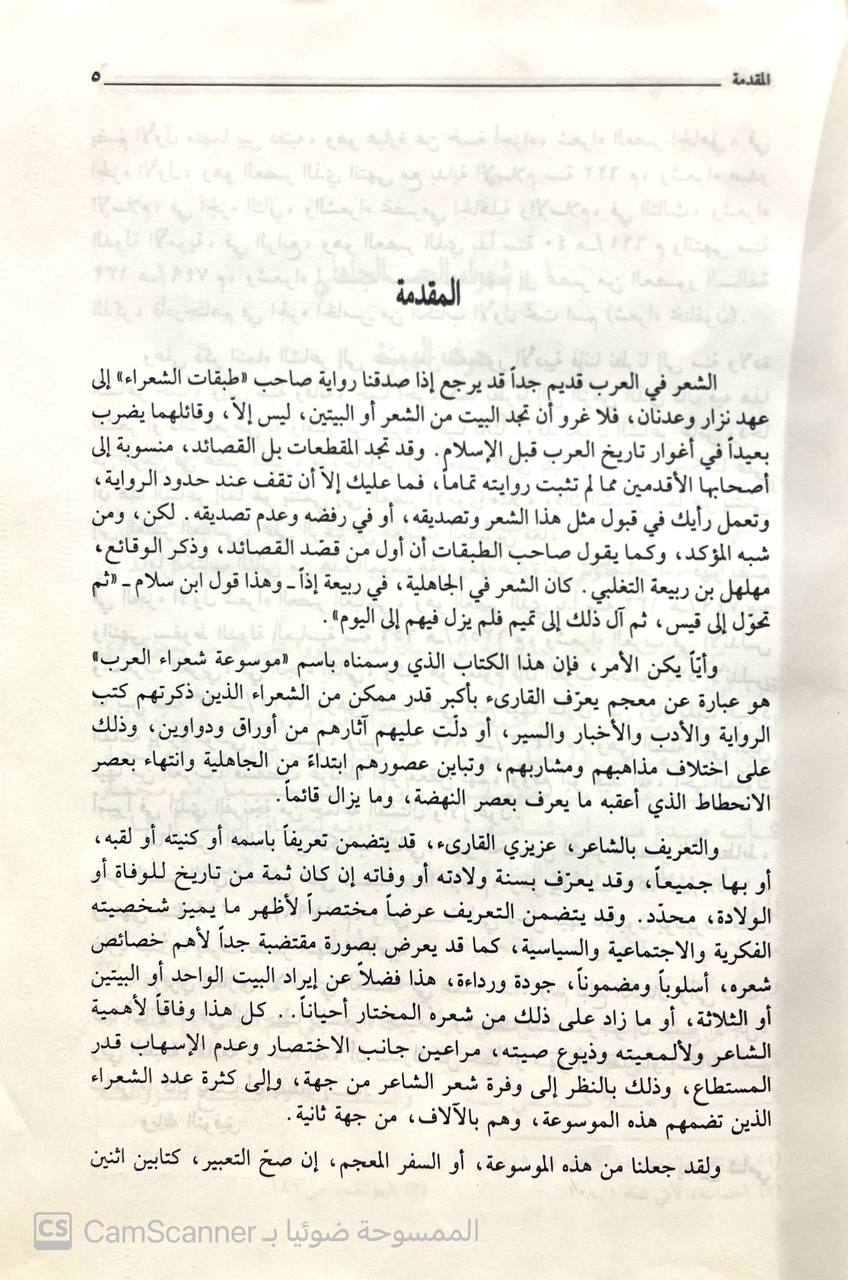 المقدمة ٥
المقدمة
الشعر في العرب قديم جداً قد يرجع إذا صدقنا رواية صاحب «طبقات الشعراء» إلى
عهد نزار وعدنان، فلا غرو أن تجد البيت من الشعر أو البيتين، ليس إلاّ، وقائلهما يضرب
بعيداً في أغوار تاريخ العرب قبل الإسلام. وقد تجد المقطعات بل القصائد، منسوبة إلى
أصحابها الأقدمين مما لم تثبت روايته تماماً، فما عليك إلاّ أن تقف عند حدود الرواية،
وتعمل رأيك في قبول مثل هذا الشعر وتصديقه، أو في رفضه وعدم تصديقه. لكن، ومن
شبه المؤكد، وكما يقول صاحب الطبقات أن أول من قصّد القصائد، وذكر الوقائع،
مهلهل بن ربيعة التغلبي. كان الشعر في الجاهلية، في ربيعة إذاً ـ وهذا قول ابن سلام ـ «ثم
تحوّل إلى قيس، ثم آل ذلك إلى تميم فلم يزل فيهم إلى اليوم».
وأيّاً يكن الأمر، فإن هذا الكتاب الذي وسمناه باسم «موسوعة شعراء العرب»
هو عبارة عن معجم يعرّف القارىء بأكبر قدر ممكن من الشعراء الذين ذكرتهم كتب
الرواية والأدب والأخبار والسير، أو دلّت عليهم آثارهم من أوراق ودواوين، وذلك
على اختلاف مذاهبهم ومشاربهم، وتباين عصورهم ابتداءً من الجاهلية وانتهاء بعصر
الانحطاط الذي أعقبه ما يعرف بعصر النهضة، وما يزال قائماً.
والتعريف بالشاعر، عزيزي القارىء، قد يتضمن تعريفاً باسمه أو كنيته أو لقبه،
أو بها جميعاً، وقد يعرّف بسنة ولادته أو وفاته إن كان ثمة من تاريخ للوفاة أو
الولادة، محدّد. وقد يتضمن التعريف عرضاً مختصراً لأظهر ما يميز شخصيته
الفكرية والاجتماعية والسياسية، كما قد يعرض بصورة مقتضبة جداً لأهم خصائص
شعره، أسلوباً ومضموناً، جودة ورداءة، هذا فضلاً عن إيراد البيت الواحد أو البيتين
أو الثلاثة، أو ما زاد على ذلك من شعره المختار أحياناً.. كل هذا وفاقاً لأهمية
الشاعر ولألمعيته وذيوع صيته، مراعين جانب الاختصار وعدم الإسهاب قدر
المستطاع، وذلك بالنظر إلى وفرة شعر الشاعر من جهة، وإلى كثرة عدد الشعراء
الذين تضمهم هذه الموسوعة، وهم بالآلاف، من جهة ثانية.
ولقد جعلنا من هذه الموسوعة، أو السفر المعجم، إن صحّ التعبير، كتابين اثنين
CS CamScanner الممسوحة ضوئيا بـ